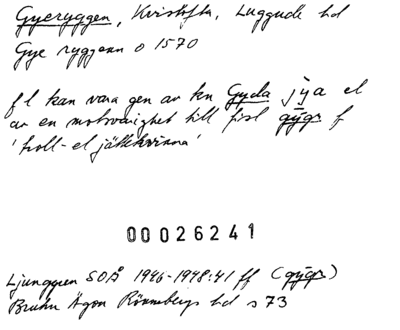 Gyeryggen, Kvistofta, Luggude hd
Gye ryggenn o 1570
fl kan vara gen av kn Gyda jya el
av en motsvarighet till fisl gȳgr f
'troll- el jättekvinna'
00026241
Ljunggren SOÅ 1946-1948:41 ff (gȳgr)
Bruhn Ägon Rönnebergs hd s 73